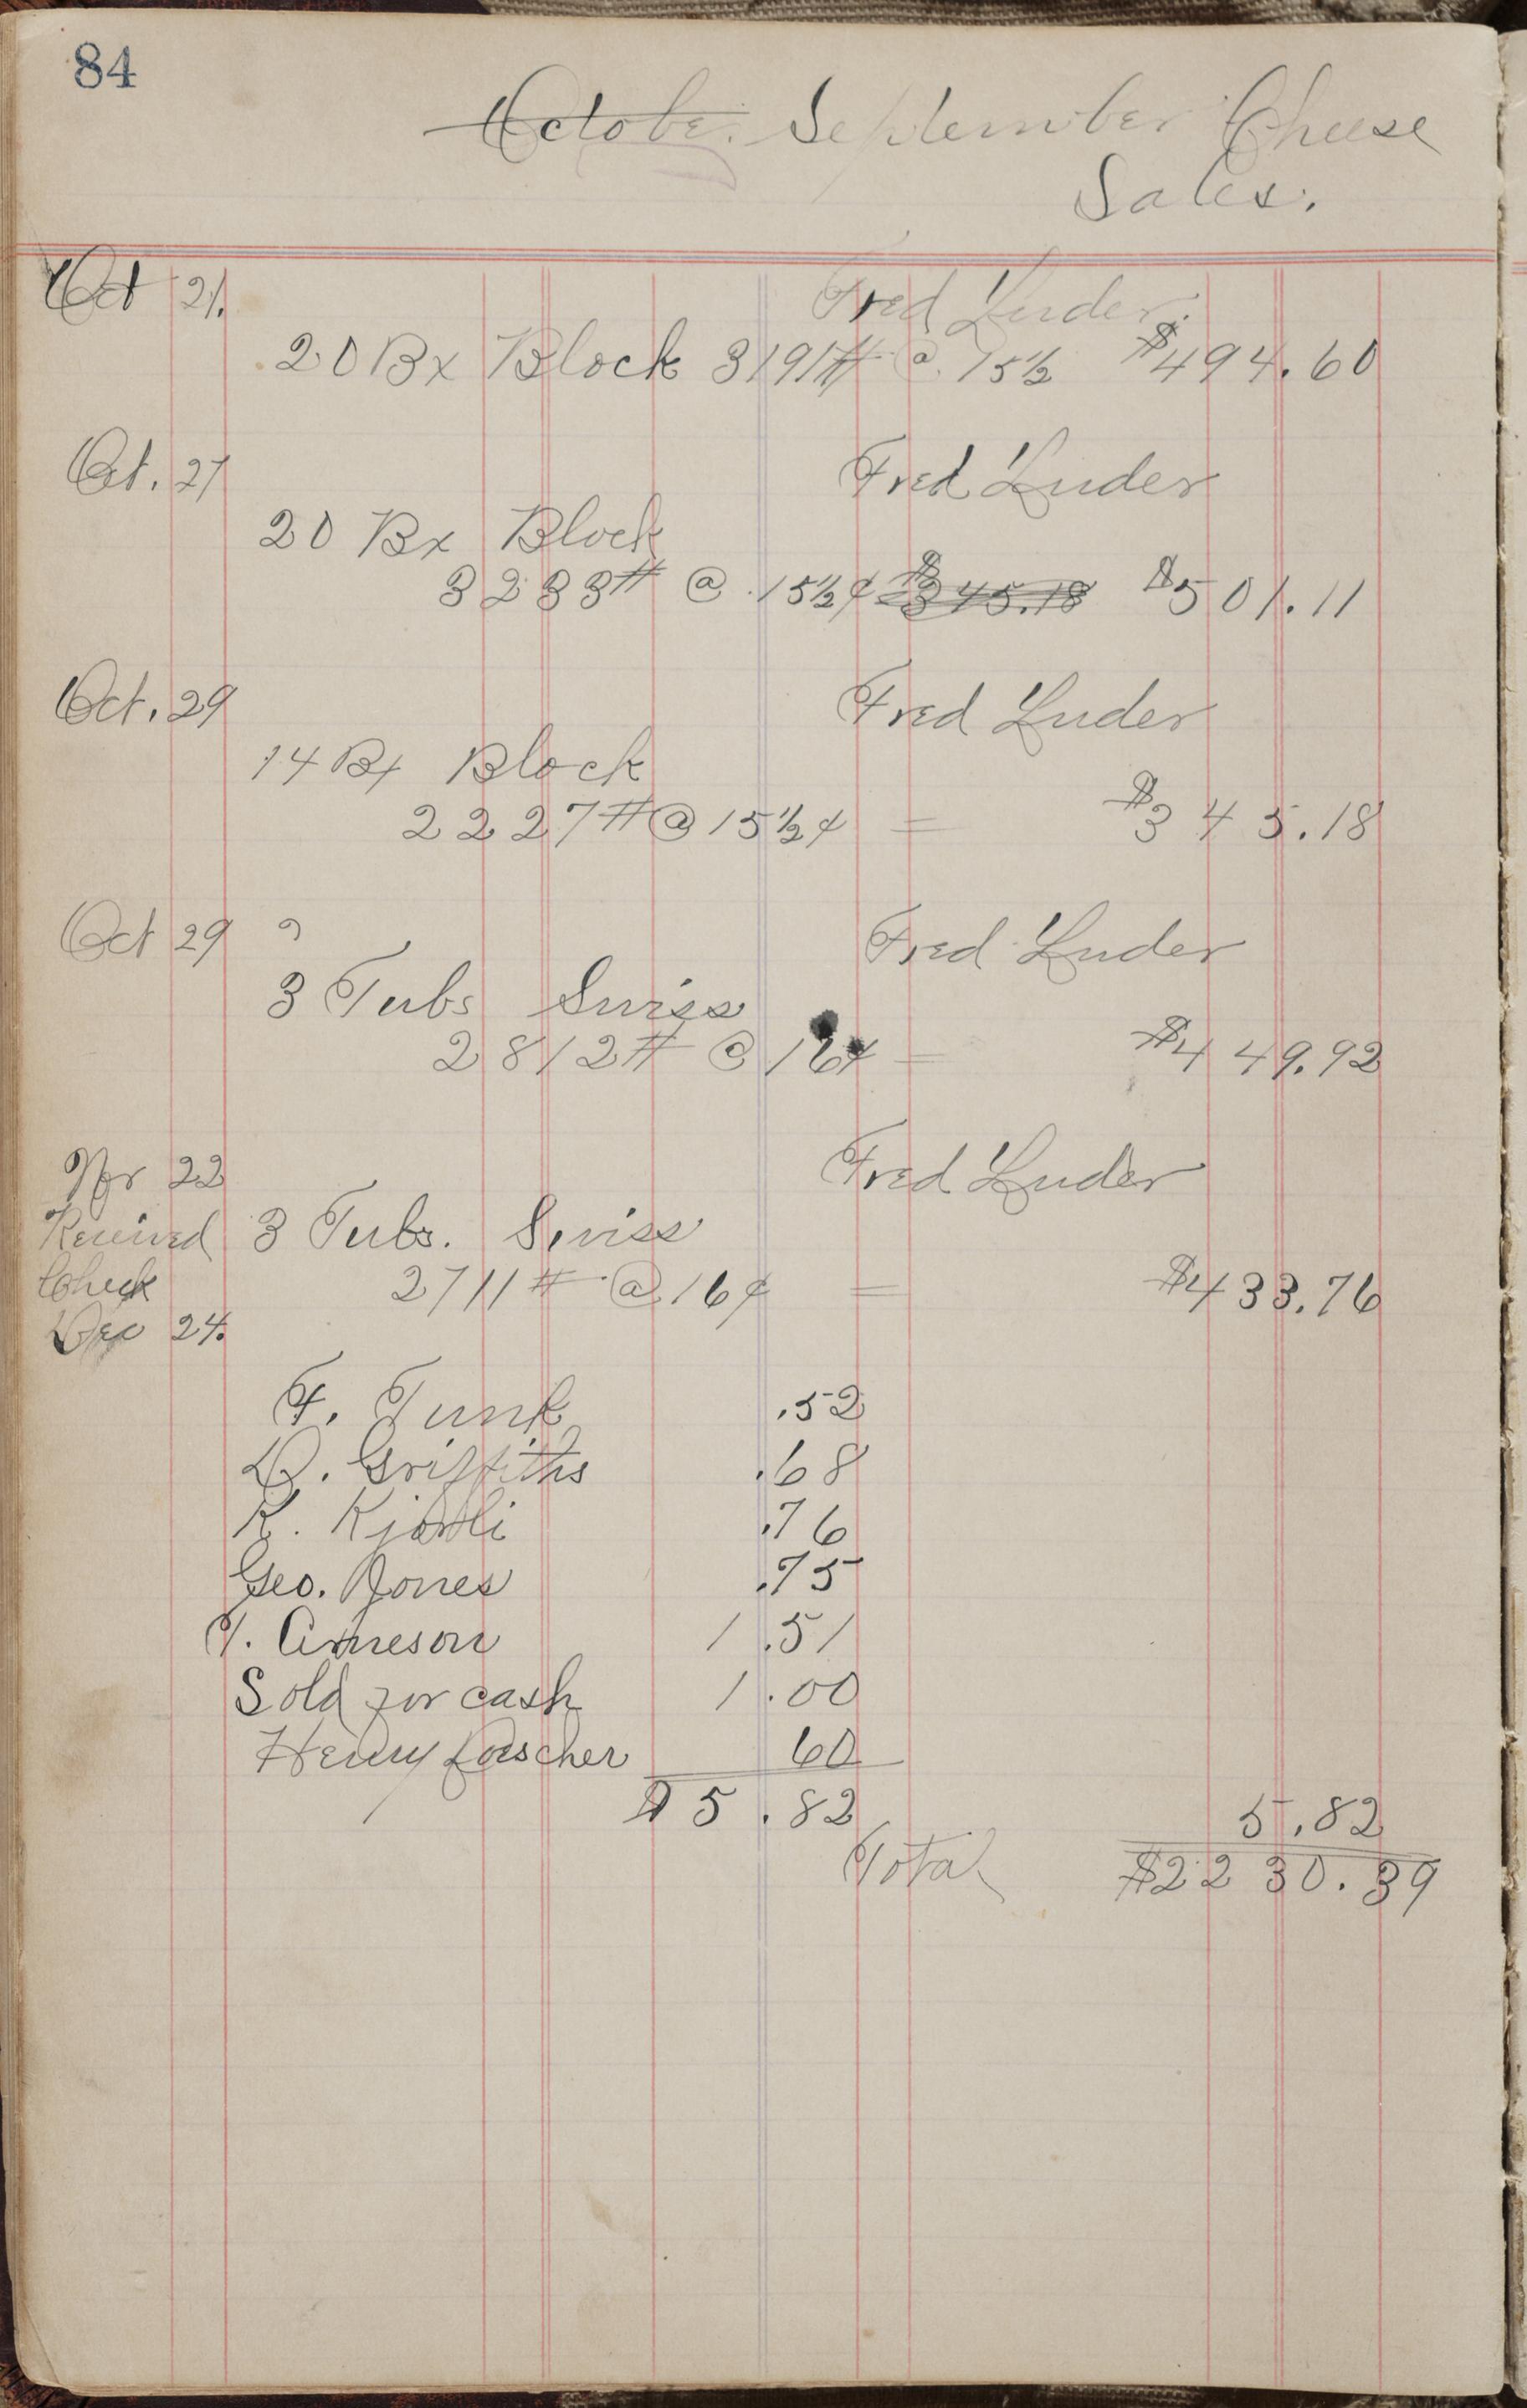 84
Octobe. September Cheese
Sales.
Oct 21. Fred Luder.
20 Bx Block 3191# @ 15½ $494.60
Oct. 27 Fred Luder
20 Bx Block
3233# @ .15½¢ $345.18 $501.11
Oct. 29 Fred Luder
14 Bx Block
2227# @ 15½¢ = $345.18
Oct 29 Fred Luder
3 Tubs Swiss
2812# @ 16¢ = $449.92
Nov 22 Fred Luder
Received 3 Tubs. Swiss
Check 2711# @ 16¢ = $433.76
Dec 24.
F. Tunk .52
D. Griffiths .68
K. .76
Geo. Jones .75
T. Arneson 1.51
Sold for cash 1.00
Henry Loescher 60
$5.82 5.82
Total $2230.39